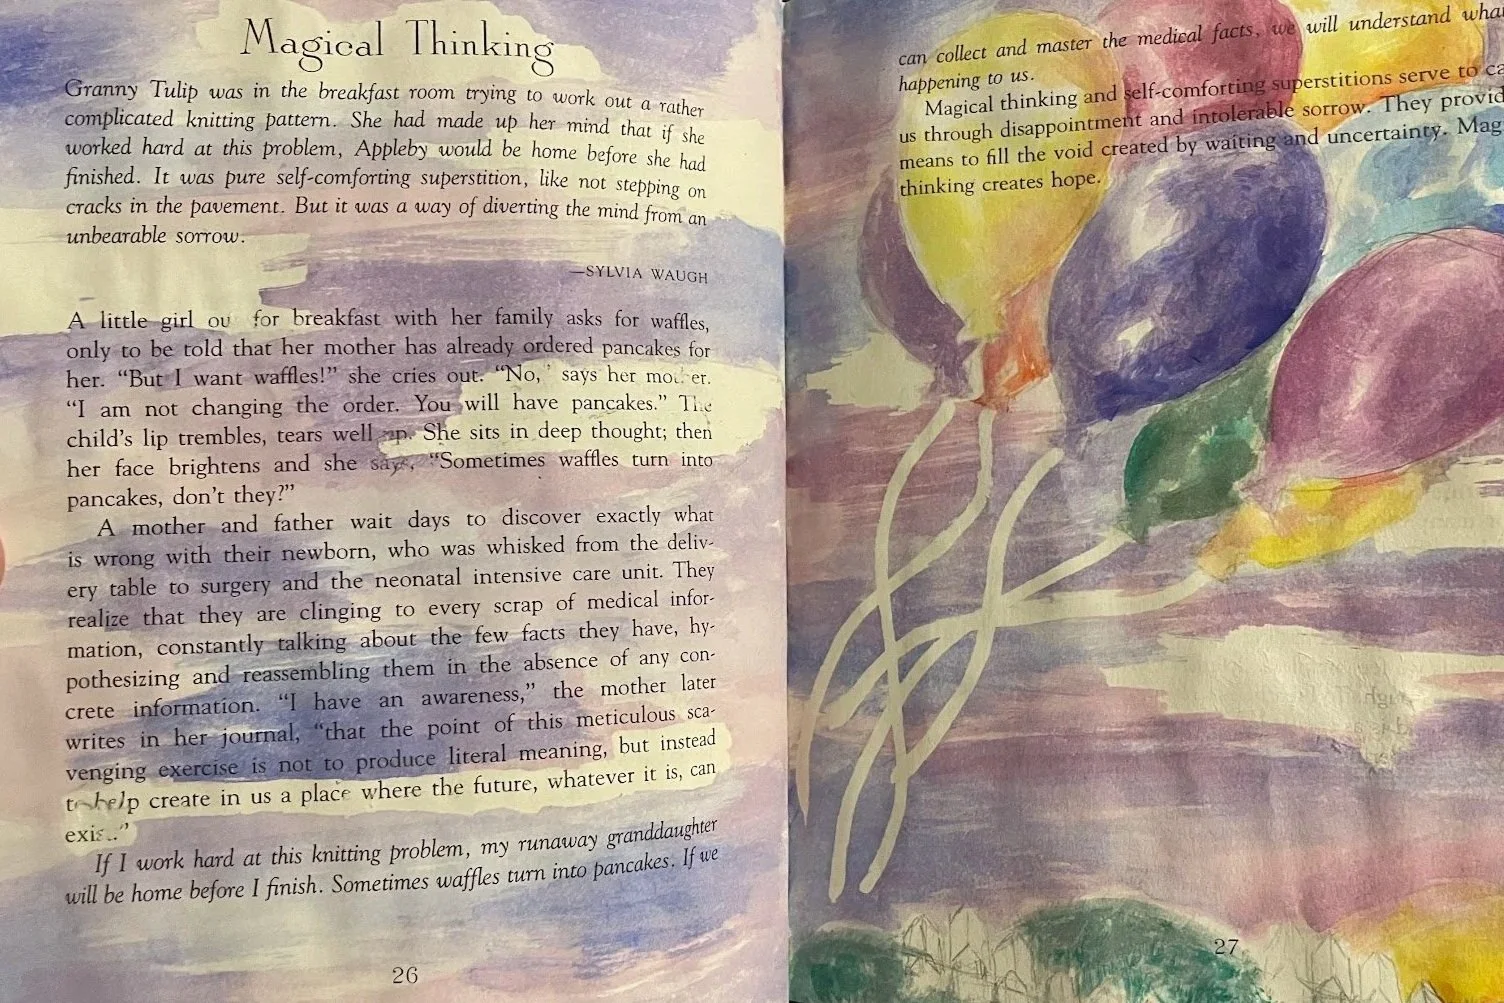 Magical Thinking
Granny Tulip was in the breakfast room trying to work out a rather
complicated knitting pattern. She had made up her mind that if she
worked hard at this problem, Appleby would be home before she had
finished. It was pure self-comforting superstition, like not stepping on
cracks in the pavement. But it was a way of diverting the mind from an
unbearable sorrow.
—SYLVIA WAUGH
A little girl ou for breakfast with her family asks for waffles,
only to be told that her mother has already ordered pancakes for
her. “But I want waffles!” she cries out. “No,’ says her mother.
“I am not changing the order. You will have pancakes.” The
child’s lip trembles, tears well up. She sits in deep thought; then
her face brightens and she says, “Sometimes waffles turn into
pancakes, don’t they?”
A mother and father wait days to discover exactly what
is wrong with their newborn, who was whisked from the deliv-
ery table to surgery and the neonatal intensive care unit. They
realize that they are clinging to every scrap of medical infor-
mation, constantly talking about the few facts they have, hy-
pothesizing and reassembling them in the absence of any con-
crete information. “I have an awareness,” the mother later
writes in her journal, “that the point of this meticulous sca-
venging exercise is not to produce literal meaning, but instead
to help create in us a place where the future, whatever it is, can
exis..”
If I work hard at this knitting problem, my runaway granddaughter
will be home before I finish. Sometimes waffles turn into pancakes. If we
26
can collect and master the medical facts, we will understand wha
happening to us.
Magical thinking and self-comforting superstitions serve to ca
us through disappointment and intolerable sorrow. They provid
means to fill the void created by waiting and uncertainty. Mag
thinking creates hope.
27